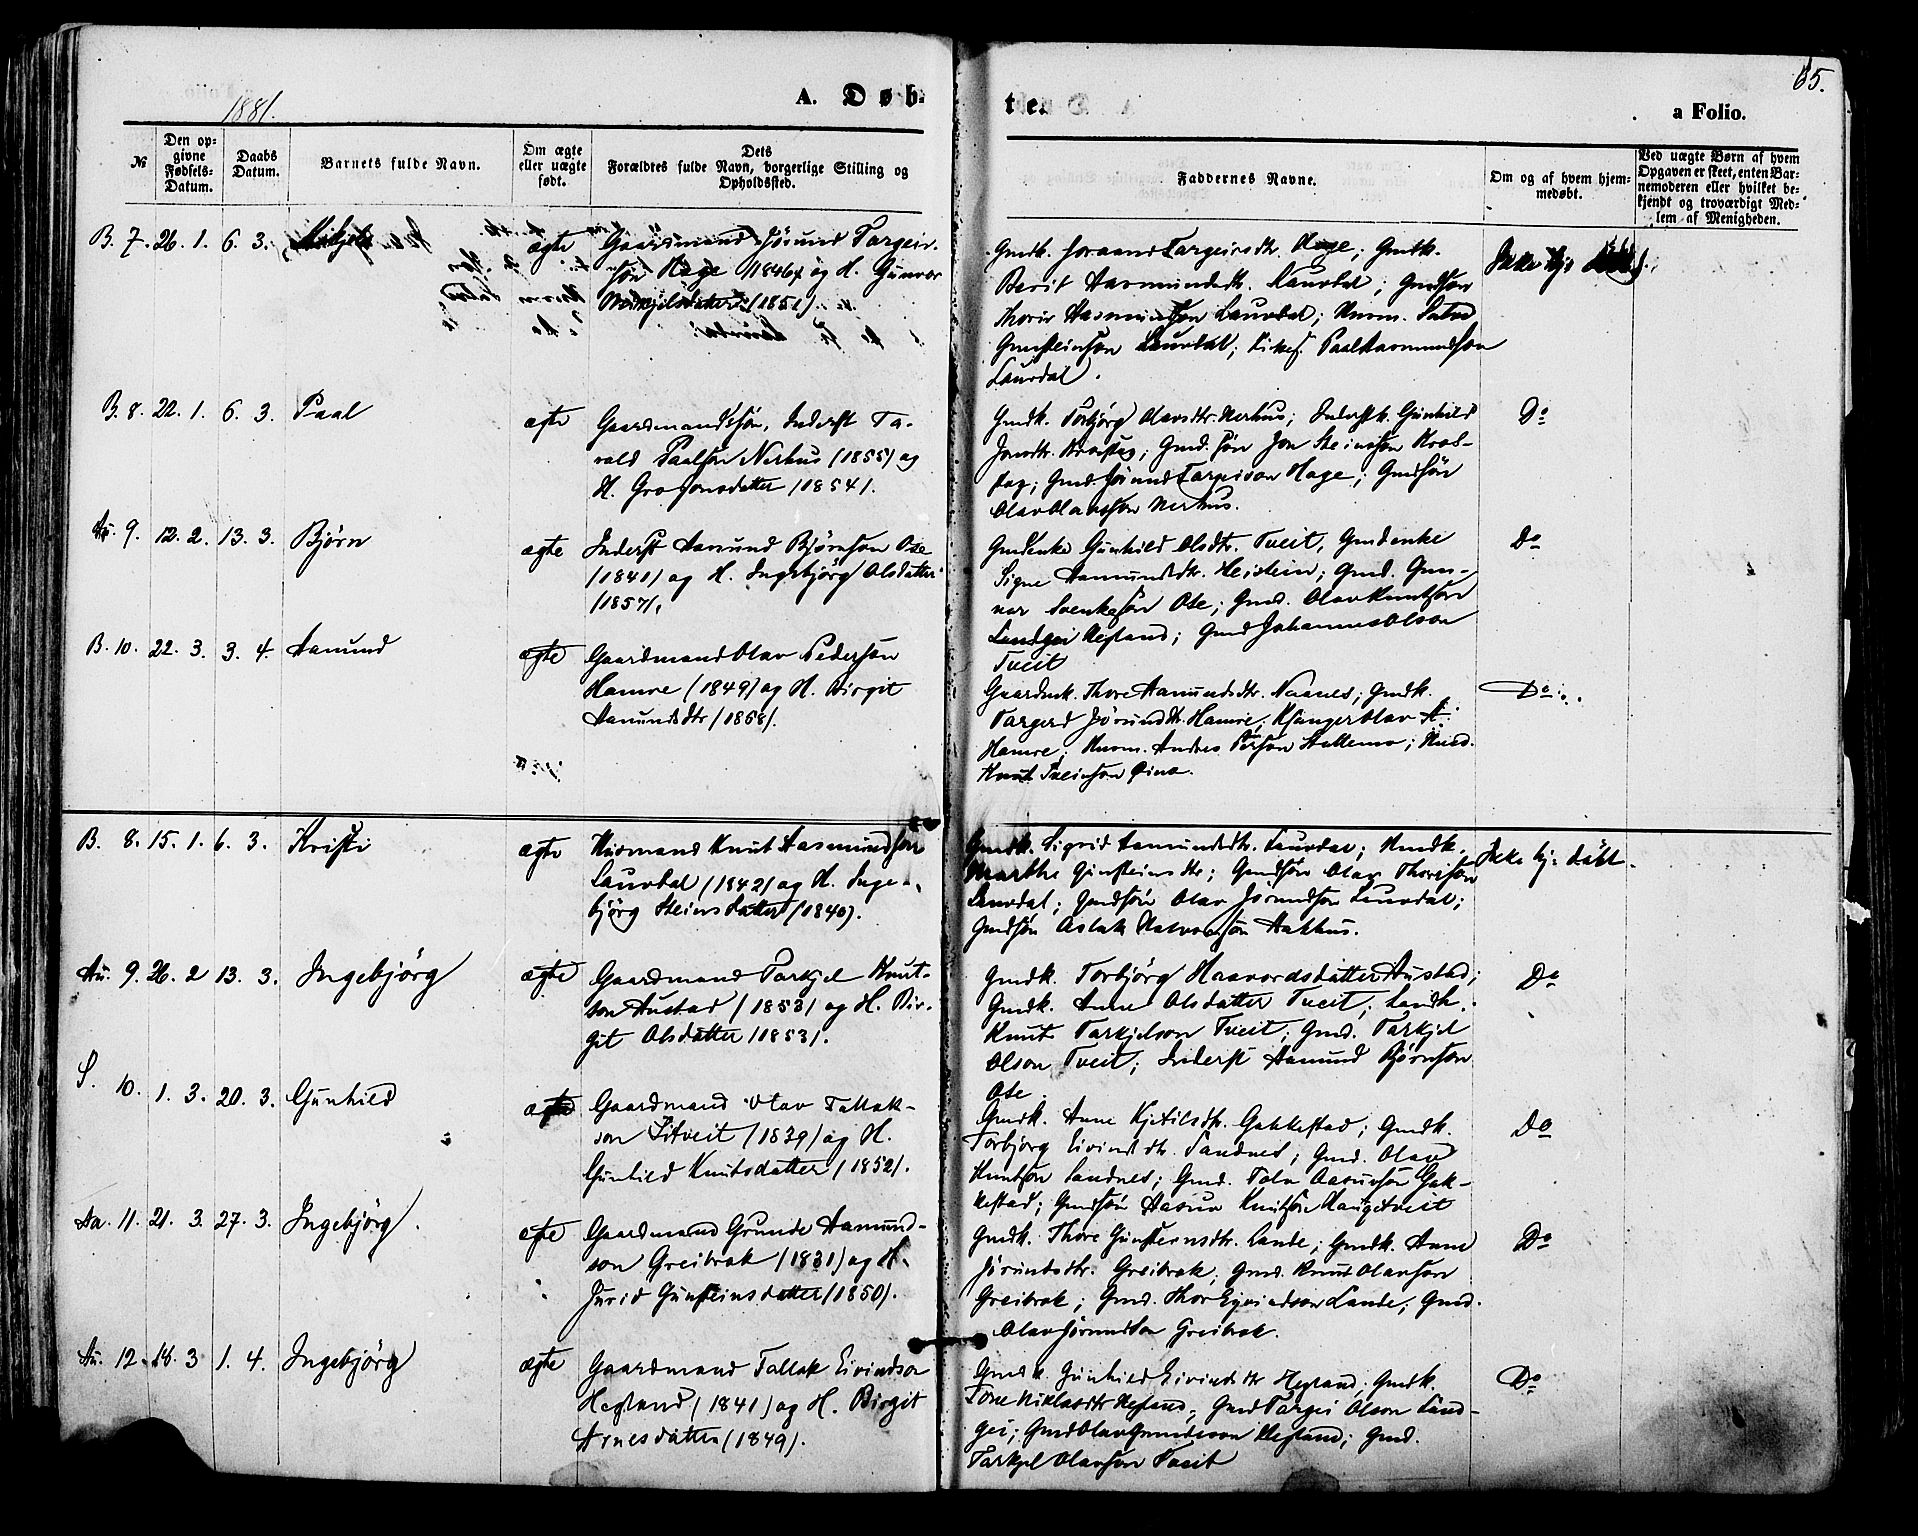 1881.
A. Døb-
te.
65.
a Folio.
№
Den op-
givne
Fødsels-
Datum.
Daabs
Datum.
Barnets fulde Navn.
Om ægte
eller uægte
født.
Dets
Forældres fulde Navn, borgerlige Stilling og
Opholdssted.
Faddernes Navne.
Om og af hvem hjem-
medøbt.
Ved uægte Børn af hvem
Opgaven er skeet, enten Bar-
nemoderen eller hvilket be-
kjendt og troværdigt Med-
lem af Menigheden.
B. 7. 26. 1. 6. 3. ægte
Gaardmand Jörund Targeir-
sön Hage (1846) og H. Gunvor
(1851).
Gmdk. Targeirsdtr. Hage; Gmdk.
Berit Aasmundsdtr. Laurdal; Gmdsön
Laurdal; Husm. Salve
Gunsteinsön Laurdal; Kirkes. Paal Aasmundsön
Laurdal.
Ikke hj.
B. 8. 22. 1. 6. 3. Paal ægte
Gaardmandssön, Inderst Ta-
rald Paalsön Nerhus (1855) og
H. Gro Jonsdatter (1854).
Gmdk. Torbjörg Olavsdtr. Nerhus; Inderstk. Gunhild
Jonsdtr.; Gmd.sön Jon Steinsson
Gmd. Jörund Targeirson Hage; Gmdsön
Olav Olavssön Nerhus.
Do
Au. 9. 12. 2. 13. 3. Björn ægte
Inderst Aamund Björnson Ose
(1841) og H. Ingebjörg Olsdatter
(1857).
Gmdenke Gunhild Olsdtr. Tveit, Gmdenke
Signe Aamundsdtr. Heistein; Gmd. Gun-
nar Svenkesön Ose; Gmd. Olav Knutsön
Landgei Hegland; Gmd Johannes Olson
Tveit
Do
B. 10. 22. 3. 3. 4. Aamund ægte
Gaardmand Olav Pedersön
Hamre (1849) og H. Birgit
Aamundsdtr (1858).
Gaardmk. Thore Aamundsdtr. Naanes; Gmdk.
Targerd Jörundsdtr. Hamre; Ksanger Olav A.
Hamre; Husm. Andres Persön Stallemo; Husm.
Knut Sveinsön
Do
B. 8. 15. 1. 6. 3. Kristi ægte
Husmand Knut Aasmundsön
Laurdal (1842) og H. Inge-
björg Steinsdatter (1840).
Gmdk. Sigrid Aamundsdtr. Laurdal; Hmdk.
Marthe Gunsteinsdtr; Gmdsön Olav Thorisön
Laurdal; Gmdsön Olav Jörundsön Laurdal;
Gmdsön Aslak Halvorsön Aakhus.
Ikke hj. döbt.
Au. 9. 26. 2 13. 3. Ingebjörg ægte
Gaardmand Tarkjel Knut-
son Austad (1853) og H. Bir-
git Olsdatter (1853).
Gmdk. Torbjörg Haavordsdatter Austad;
Gmdk. Anne Olsdatter Tveit; Landh.
Knut Tarkjelson Tveit; Gmd. Tarkjel
Olson Tveit; Inderst Aamund Björnson
Ose
Do
S. 10. 1. 3. 20. 3. Gunhild ægte
Gaardmand Olav Tallak-
son Litveit (1839) og H.
Gunhild Knutsdatter (1852).
Gmdk. Anne Kjetilsdtr. Gakkestad; Gmdk.
Torbjörg Eivindsdtr. Sandnes; Gmd. Olav
Knutsön Sandnes; Gmd. Talv Aasursön Gak-
kestad; Gmdsön Aasur Knutsön Haugetveit
Do
Aa. 11. 21. 3. 27. 3. Ingebjörg. ægte
Gaardmand Grunde Aamund-
son Greibrok (1831) og H.
Jurid Gunsteinsdatter (1850).
Gmdk. Thore Gunsteinsdtr. Lande; Gmdk. Anne
Jörundsdtr. Greibrok; Gmd. Knut Olavsön
Greibrok; Gmd. Thor Eyvindson Lande; Gmd.
Olav Jörundsön Greibrok.
Do
Au. 12. 18. 3 1. 4. Ingebjörg ægte
Gaardmand Tallak Eivindson
Hegland (1841) og H. Birgit
Arnesdatter (1849).
Gmdk. Gunhild Eivindsdtr Hegland; Gmdk.
Tone Niklasdtr Hegland; Gmd Targei Olson Land-
gei; Gmd Olav Gundersson Hegland; Gmd.
Tarkjel Olavsön Tveit
Do